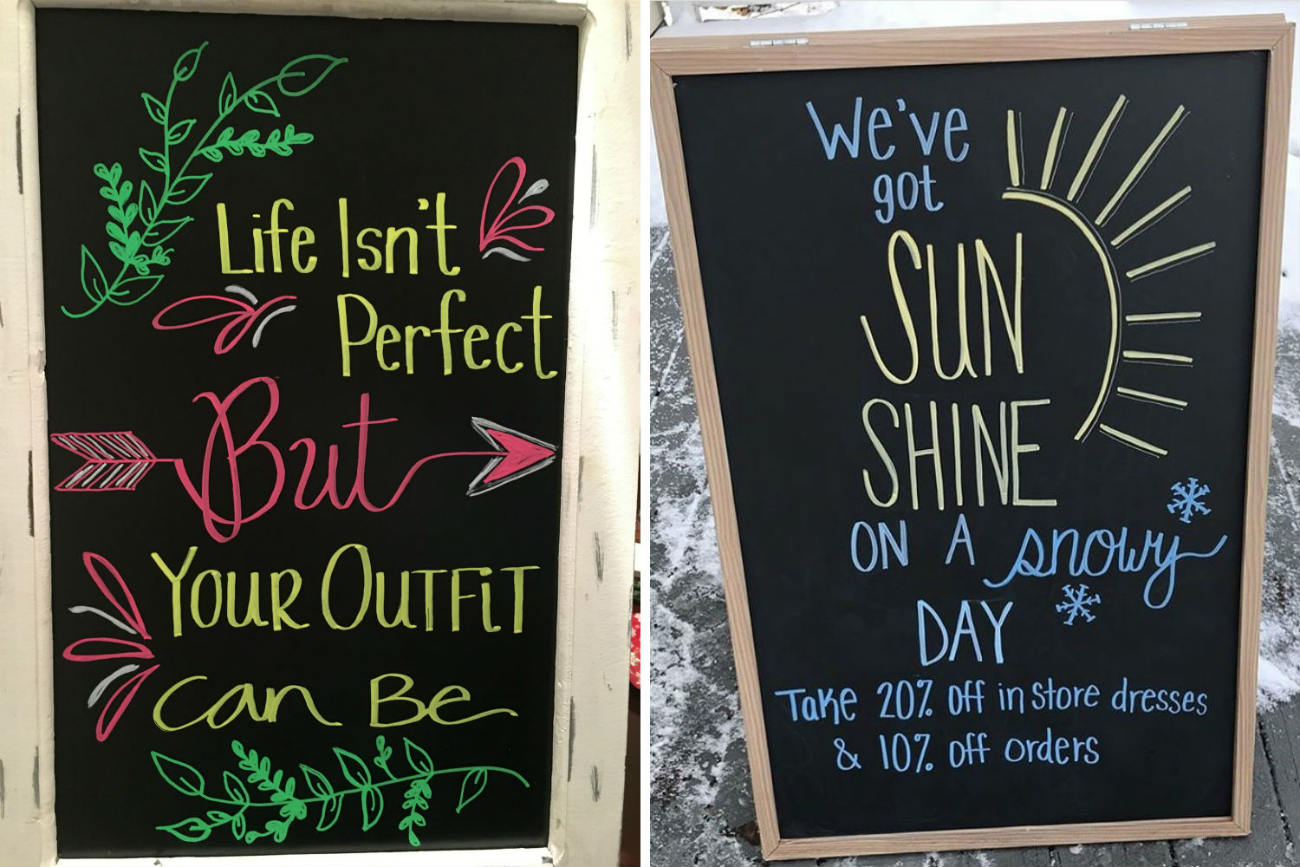 Life Isn't
Perfect
But
YOUR OUTFiT
can Be
We've
got
SUN
SHINE
ON A snowy
DAY
Take 20% off in store dresses
& 10% off orders